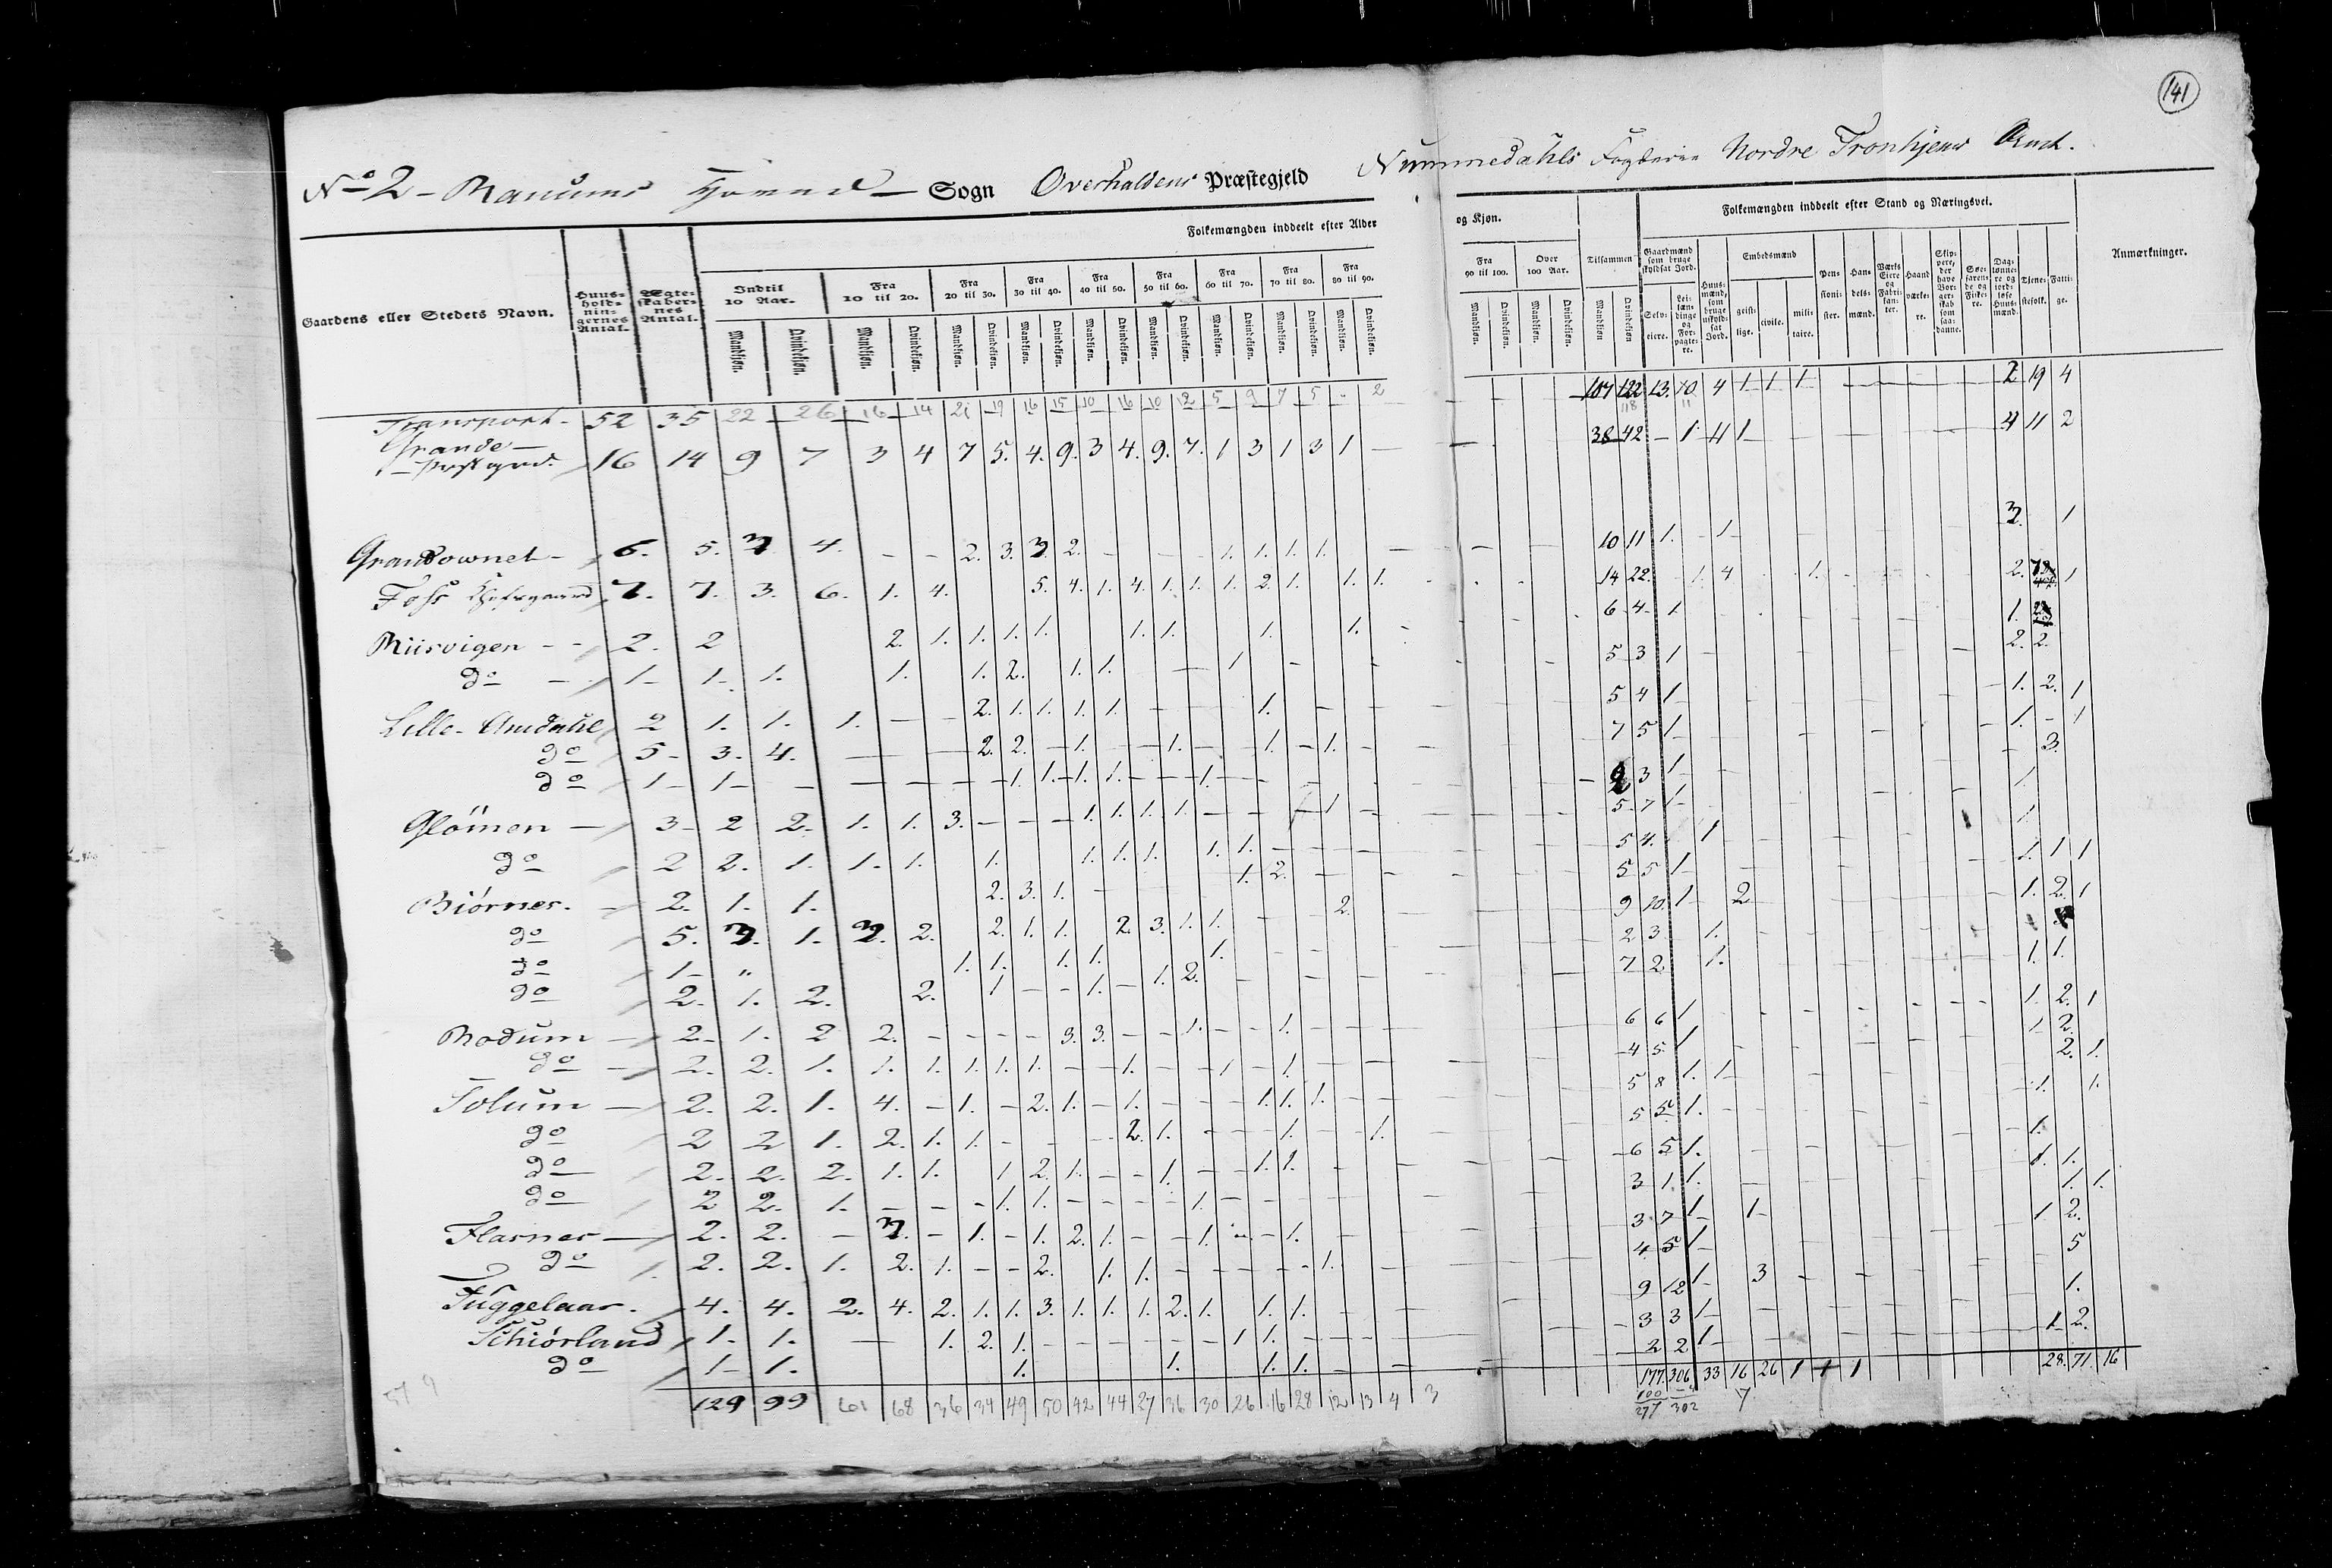 141
No 2 - Ranums Sogn Overhaldens Præstegjeld Nummedahls Fogderie Nordre Tronhjems Amt.
Gaardens eller Stedets Navn.
Huusholdningernes Antal.
Ægteskabernes Antal.
Folkemængden inddeelt efter Alder og Kjøn.
Indtil 10 Aar.
Fra 10 til 20.
Fra 20 til 30.
Fra 30 til 40.
Fra 40 til 50.
Fra 50 til 60.
Fra 60 til 70.
Fra 70 til 80.
Fra 80 til 90.
Fra 90 til 100.
Over 100 Aar.
Tilsammen
Mandkjøn. Qvindekjøn.
Folkemængden inddeelt efter Stand og Næringsvei.
Gaardmænd som bruge skyldsat Jord.
Selveiere.
Leilændinge og Forpagtere.
Huusmænd, som bruge uskyldsat Jord.
Embedsmænd
geistlige. civile. militaire.
Pensionister.
Handelsmænd.
Værks Eiere og Fabrikanter.
Haandværkere.
Skippere, der have Borgerskab som saadanne.
Søefarende og Fiskere.
Daglønnere og jordløse Huusmænd.
Tjenestefolk.
Fattige.
Anmærkninger.
Transport - 52 35 22 26 16 14 21 19 16 15 10 16 10 12 5 9 7 5 - 2 107 122 13 10 4 1 1 1 2 19 4
118 11
Grande -
Præstgaard 16 14 9 7 3 4 7 5. 4. 9. 3 4. 9. 7. 1 3 1 3 1 - 38 42 - 1 11 1 4 11 2
Grandownet - 6. 5. 3 4. - - 2. 3. 3. 2. - 1. 1. 1. 1. 10 11 1. - 1 - 3. 1
Foss 7. 7. 3. 6. 1. 4. 5. 4. 1. 4. 1. 1. 1. 2. 1. 1. 1. 14 22. 1. 4 1. 2. 1
Riisvigen - - 2. 2 2. 1. 1. 1. 1. 1. 1. 1. 1. 6 4 1 1.
do 1 - 1 - 1. 1. 1. 2. 1. 1. 1 5 3 1 2. 2.
Lille Amdahl 2 1. 1. 1. - - 2. 1. 1. 1. 1. 1. 5 4 1 1. 2. 1
do 5 - 3. 4. - 2. 2. - 1. 1. 1. 1. 7 5 1 1. - 1
do 1 - 1 - - 1. 1. 1. 1. 1. 3 1 3.
Glömen - 3 - 2 2. 1. 1. 3. - - - 1. 1. 1. 1. - - 1. 5 7 1 1.
do 2 2. 1. 1. 1. 1. 1. 1. 1. 1. 1. 5 4. 1 1.
Biörnes. 2. 1. 1. 2. 3. 1. 1. 2. 5 5 1 1. 1 1
do 5. 3. 1. 3. 2. 2. 1. 1. 2. 3. 1. 1. 2. 9 10. 1 2 1. 2. 1
do 1 - " 1. 1. 1. 1. 1. 2 3 1.
do 2. 1. 2. 2. 1 - - 1. - 1. 2. 7 2 1. 1. 1.
Rodum - 2. 1. 2 2. - - - - 3. 3. - - 1. - - 1. 6 6 1 1. 2. 1
do 2. 2. 1. 1. 1. 1. 1. 1. - - 1. - - 1 - 1. 4 5. 1 1 2.
Solum - 2. 2. 1. 4. - 1. - 2. 1. - 1. - - - 1. 1. 1. 5 8 1. 1 2. 1.
do 2 2 1. 2. 1. 1. - - - 2. 1. - - - 1. 1. 5 5 1. 1. 1.
do 2. 2. 2. 1. 1. 1 2. 1. - - 1. - 1. 1. 6 5 1. 1.
do 2 2. 1. - - - 1. 1. - - - - 1. 3 1. 1. 1. 1.
Flasnes - 2. 2. - 3. - 1. - 1. 2. 1. - - 1. - 1. 3 7 1 1 1. 1.
do 2. 2. 1. 2. 1. - - 2. 1. 1. - - - - - 1. 4 5 1 1 2.
Tuggelaas. 4. 4. 2. 4. 2. 1. 1. 3. 1. 1. 1. 2. 1. 1. 1. 9 12 1 3 5
Schiörland 1. 1. - 1. 2. 1. - - - - - - 1 1. 3 3 1 1.
do 1 - 1. 1. 1. 1. 1. 2 2 1 1. 2.
129 99 61 68 36 34 49 50 42 44 27 36 30 26 16 28 12 13 4 3 177 306 33 16 26 1 1 1 28. 71. 16
100 - 4 17
277 302